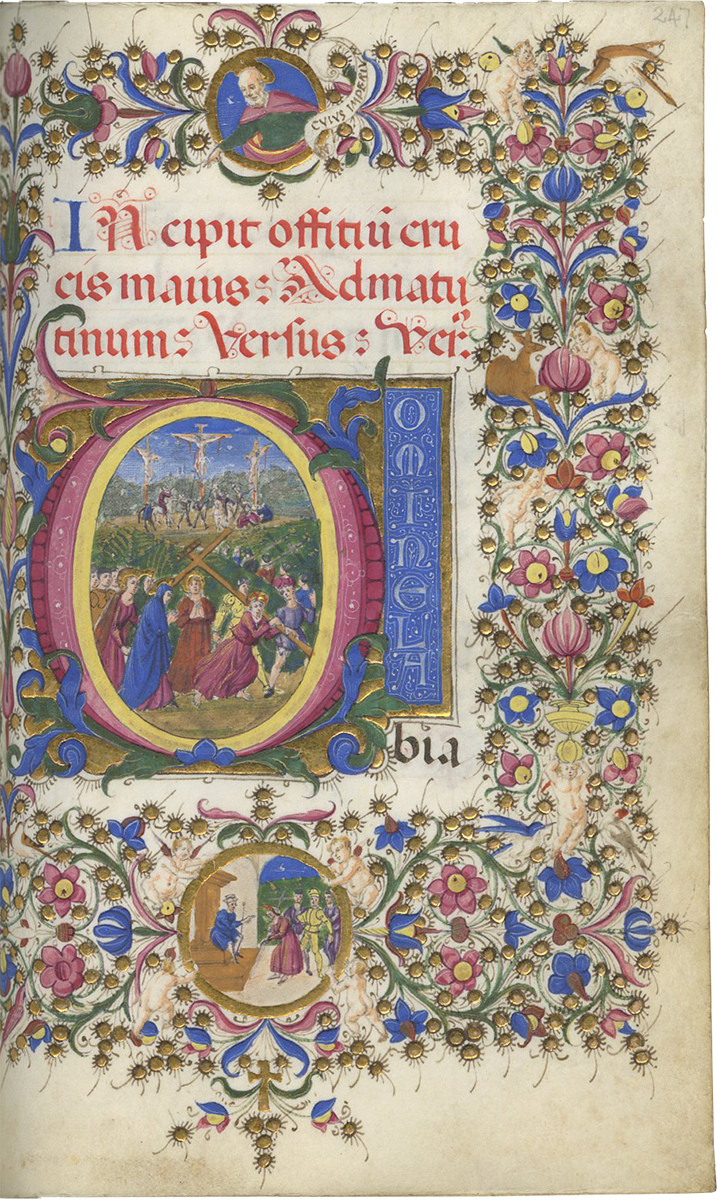 247
CVIVS
INcipit offitiũ cru
cis maius : Admatu
tinum : Versus : Ver.
DOMINELA
bi.a